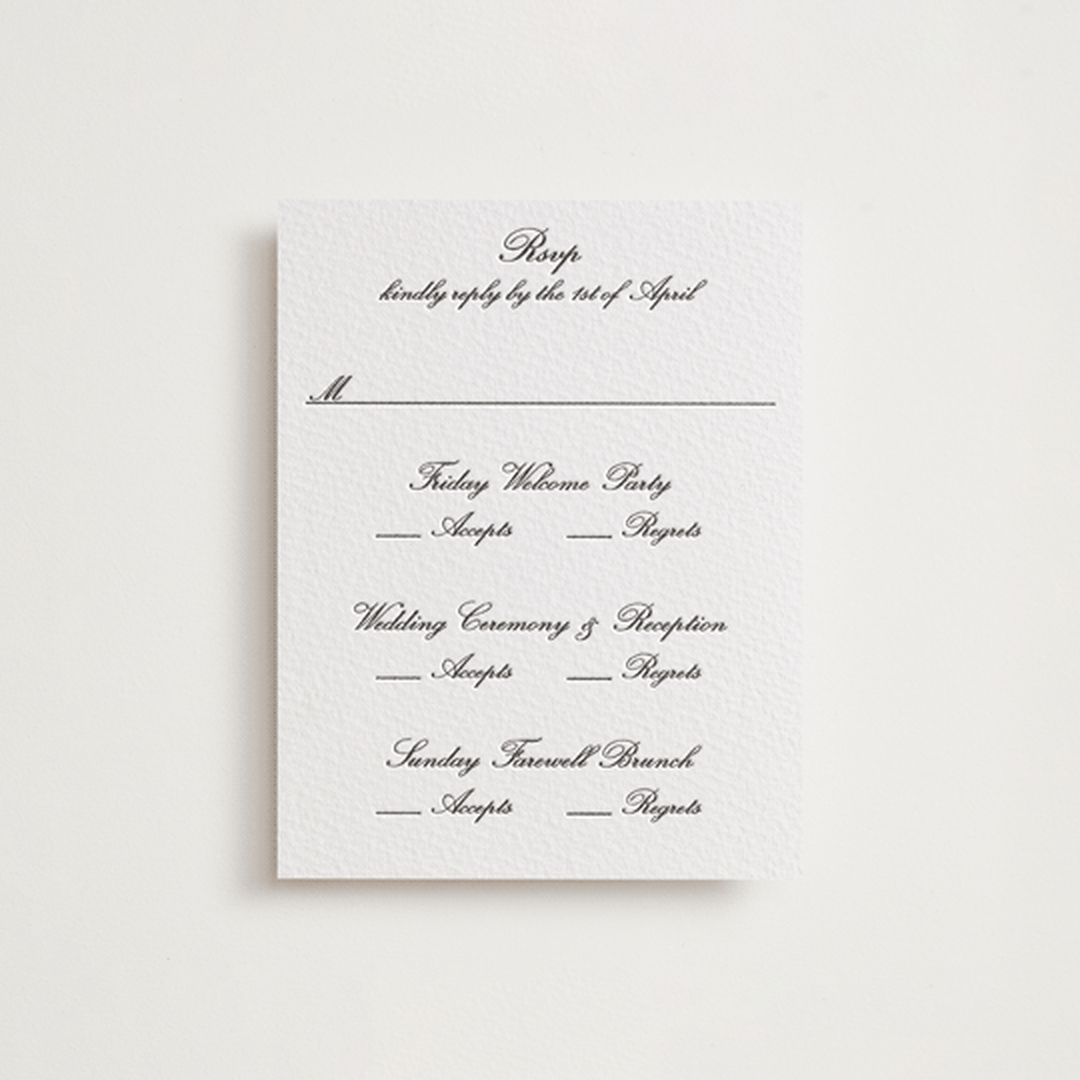 Rsvp
kindly reply by the 1st of April
M
Friday Welcome Party
___ Accepts ___ Regrets
Wedding Ceremony & Reception
___ Accepts ___ Regrets
Sunday Farewell Brunch
___ Accepts ___ Regrets